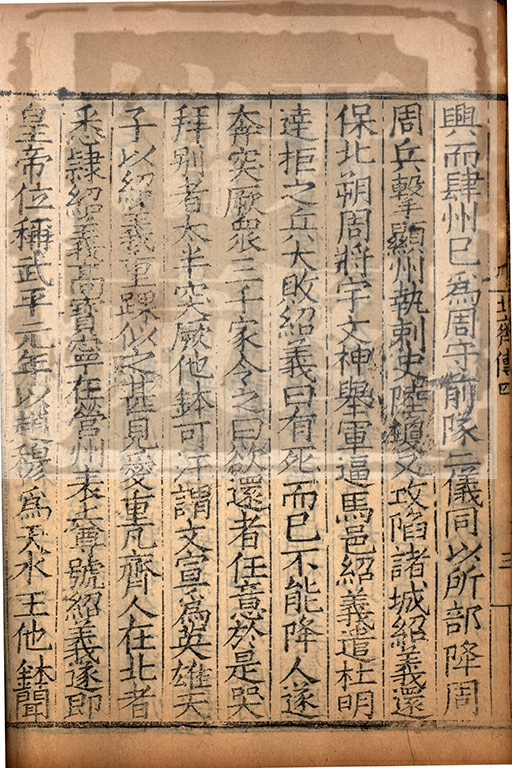 興而肆州已爲周守前隊二儀同以所部降周
周兵擊顯州執刺史陸瓊又攻陷諸城紹義還
保北朔周將宇文神舉軍逼馬邑紹義遣杜明
達拒之兵大敗紹義曰有死而已不能降人遂
奔突厥衆三千家令之曰欲還者任意於是哭
拜别者太半突厥他鉢可汗謂文宣爲英雄天
子以紹義重踝似之甚見愛重凡齊人在北者
悉隷紹義高寳寧在營州表上尊號紹義遂即
皇帝位稱武平元年以趙穆爲天水王他鉢聞
北齊傳四
三